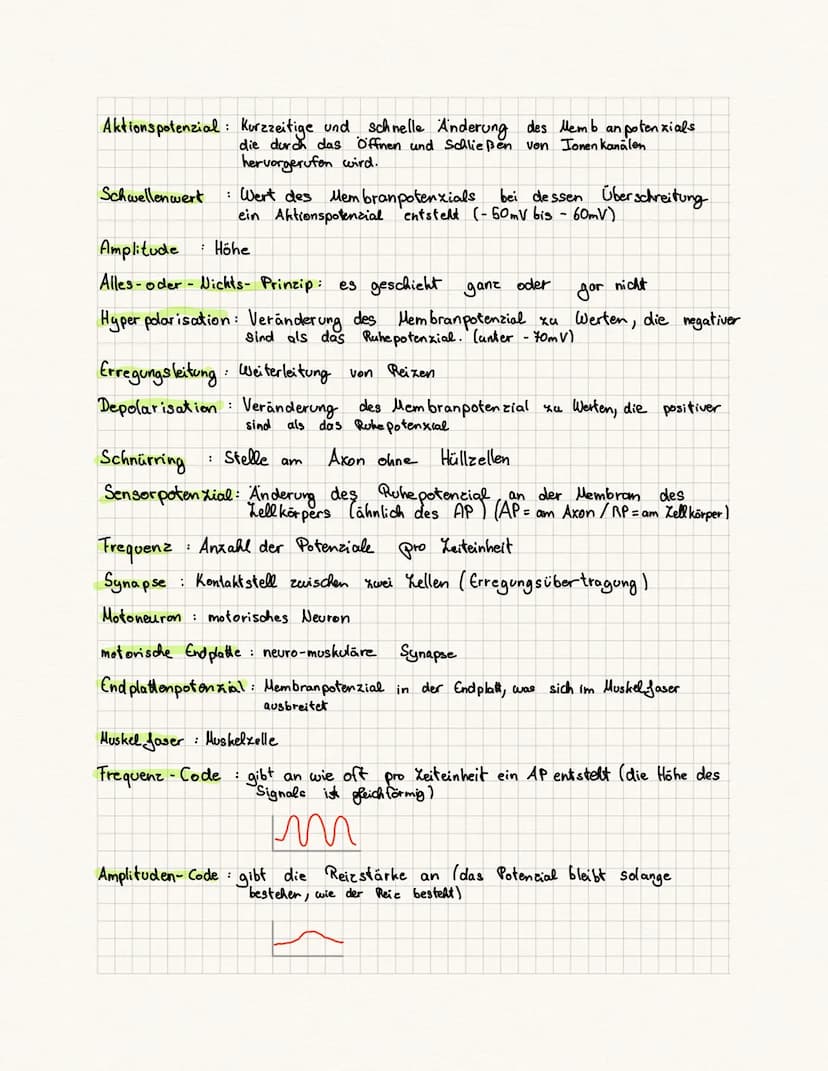 Aktionspotenzial : Kurzzeitige und schnelle Änderung des Memb anpotenzials
die durch das Öffnen und Schließen von Ionenkanälen
hervorgerufen wird.
Schwellenwert : Wert des Membranpotenzials bei dessen Überschreitung
ein Aktionspotenzial entsteht (-50mV bis -60mV)
Amplitude : Höhe
Alles-oder-Nichts-Prinzip : es geschieht ganz oder gar nicht
Hyperpolarisation : Veränderung des Membranpotenzial zu Werten, die negativer
sind als das Ruhepotenzial. (unter -70mV)
Erregungsleitung : Weiterleitung von Reizen
Depolarisation : Veränderung des Membranpotenzial zu Werten, die positiver
sind als das Ruhepotenzial
Schnürring : Stelle am Axon ohne Hüllzellen
Sensorpotenzial : Änderung des Ruhepotenzial an der Membran des
Zellkörpers (ähnlich des AP) (AP = am Axon / RP = am Zellkörper)
Frequenz : Anzahl der Potenziale pro Zeiteinheit
Synapse : Kontaktstell zwischen zwei Zellen (Erregungsübertragung)
Motoneuron : motorisches Neuron
motorische Endplatte : neuro-muskuläre Synapse
Endplattenpotenzial : Membranpotenzial in der Endplatt, was sich im Muskelfaser
ausbreitet
Muskelfaser : Muskelzelle
Frequenz-Code : gibt an wie oft pro Zeiteinheit ein AP entsteht (die Höhe des
Signals ist gleichförmig)
Amplituden-Code : gibt die Reizstärke an (das Potenzial bleibt solange
bestehen, wie der Reiz besteht)